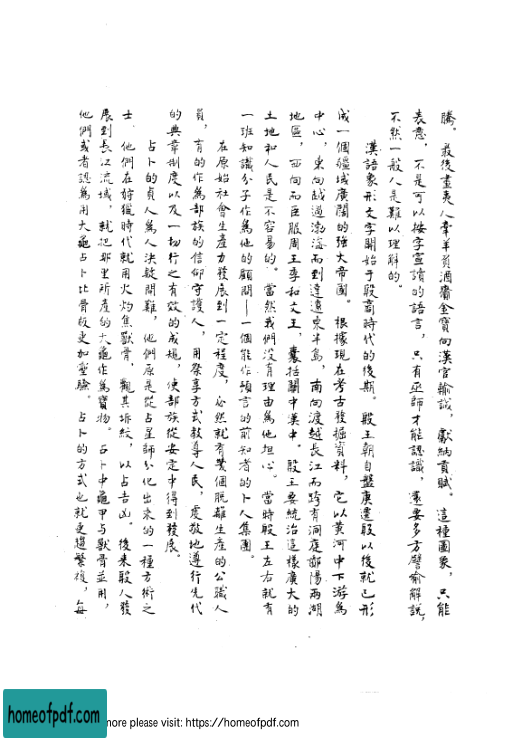 騰。最後畫夷人牽羊負酒齎金寶向漢官輸誠，獻納貢賦。這種圖象，只能
表意，不是可以按字宣讀的語言，只有巫師才能認識，還要多方譬喻解說，
不然一般人是難以理解的。
漢語象形文字開始于殷商時代的後期。殷王朝自盤庚遷殷以後就已形
成一個疆域廣闊的強大帝國。根據現在考古發掘資料，它以黃河中下游為
中心，東向越過渤海而到達遼東半島，南向渡越長江而跨有洞庭鄱陽兩湖
地區，西向而臣服周王季和文王，囊括關中漢中。殷王要統治這樣廣大的
土地和人民是不容易的。當然我們沒有理由為他担心。當時殷王左右就有
一班知識分子作為他的顧問—一個能作預言的前知者的卜人集團。
在原始社會生產力發展到一定程度，必然就有幾個脫離生產的公職人
員，有的作為部族的信仰守護人，用祭享方式教導人民，虔敬地遵行先代
的典章制度以及一切行之有效的成規，使部族從安定中得到發展。
占卜的貞人為人決疑問難，他們原是從占星師分化出來的一種方術之
士。他們在狩獵時代就用火灼焦獸骨，觀其坼紋，以占吉凶。後來殷人發
展到長江流域，就把那里所產的大龜作為寶物。占卜中龜甲与獸骨並用，
他們或者認為用大龜占卜比骨板更加靈驗。占卜的方式也就更趨繁複，每
homeofpdf.com
more please visit: https://homeofpdf.com